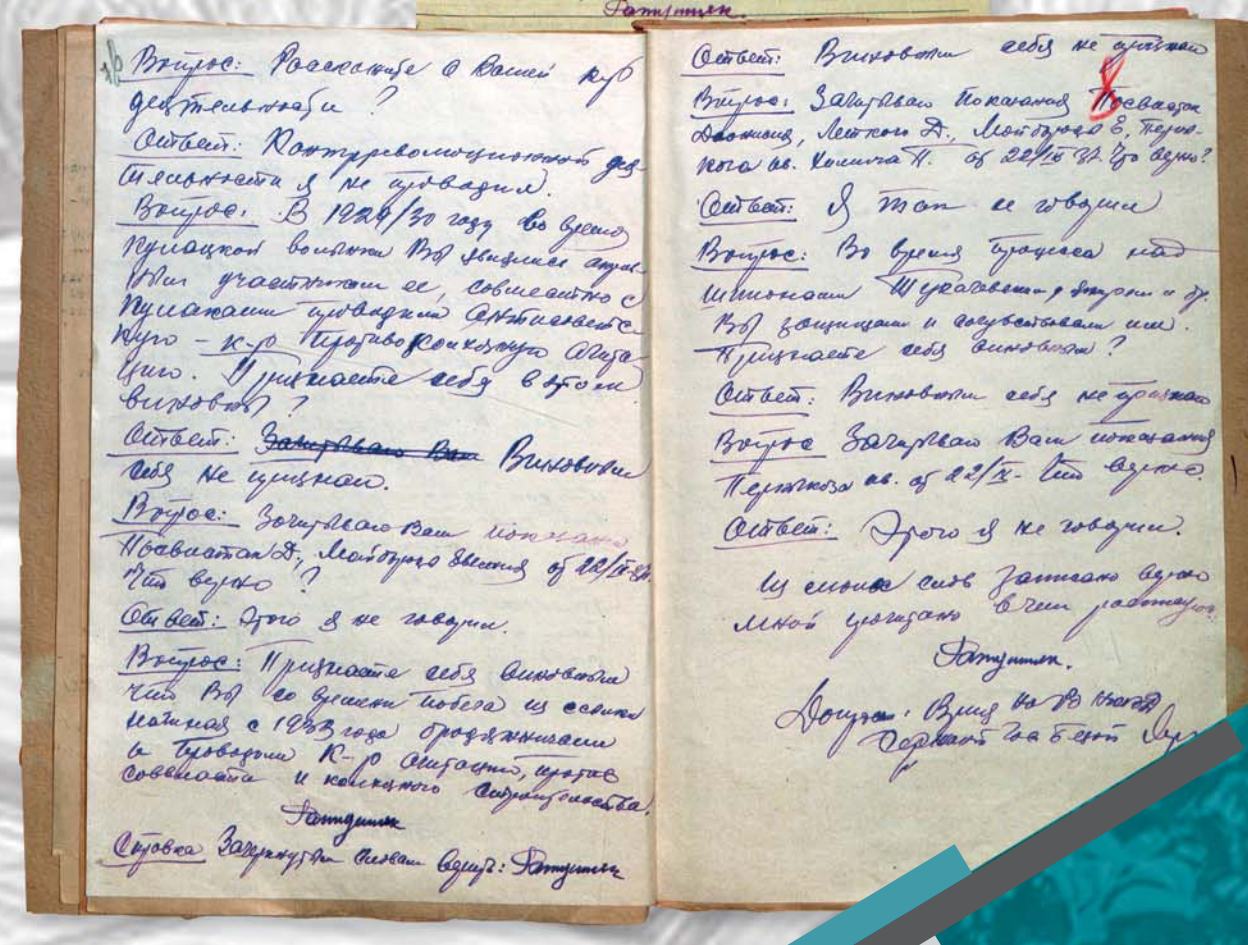 Гатушняк.
Вопрос: Расскажите о Вашей к-р
деятельности?
Ответ: Контрреволюционной дея-
тельности я не проводил.
Вопрос: В 1929/30 году во время
кулацкой волынки Вы являлись актив-
ным участником ее, совместно с
кулаками проводили антисоветс
кую - к-р противоколхозную агита
цию. Признаете себя в этом
виновны?
Ответ: Зачитываю Вам Виновным
себя не признаю.
Вопрос: Зачитываю Вам показания
Д., Майбороды Евгения от 22/IX-37.
Что верно?
Ответ: Этого я не говорил.
Вопрос: Признаете себя виновным
что Вы со времени побега из ссылки
начиная с 1933 года бродяжничали
и проводили к-р агитацию, против
соввласти и колхозного строительства.
Справка Зачеркнутым словам верить:
8
Ответ: Виновным себя не признаю
Вопрос: Зачитываю показания
Д., Майбороды Е,
ив. П. от 22/IX 37. Что верно?
Ответ: Я так не говорил
Вопрос: Во время процесса над
шпионами Тухачевским, Якиром и др.
Вы защищали и сочувствовали им.
Признаете себя виновным?
Ответ: Виновным себя не признаю
Вопрос Зачитываю Вам показания
ив. от 22/IX- Что верно.
Ответ: Этого я не говорил.
Из моих слов записано верно
мной прочитано в чем
Допрос:
Сержант Гос Безоп